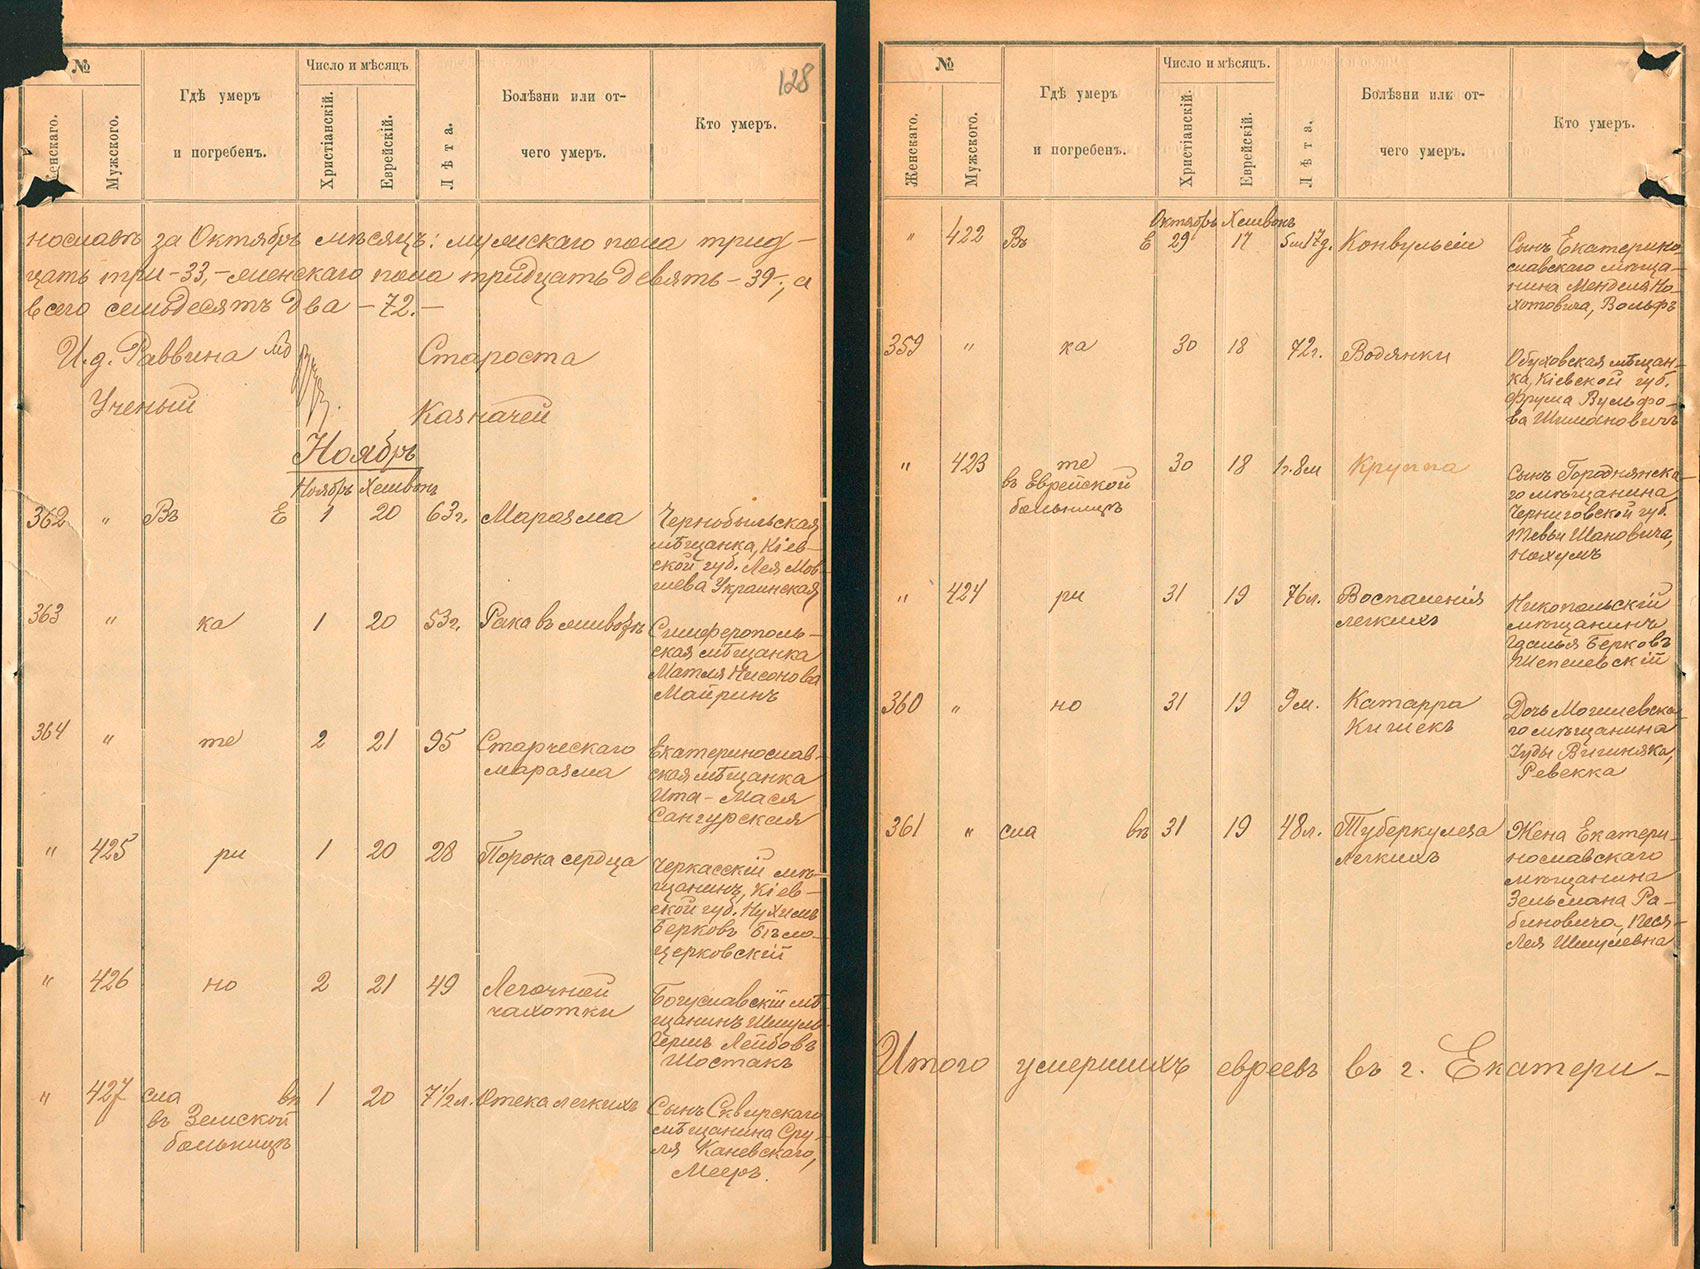 128
№
Число и мѣсяцъ
Женскаго.
Мужскаго.
Гдѣ умеръ
и погребенъ.
Христіанскій.
Еврейскій.
Лѣта.
Болѣзни или от-
чего умеръ.
Кто умеръ.
нославѣ за Октябрь мѣсяцъ: мужскаго пола трид-
цать три - 33, - женскаго пола тридцать девять - 39 -, а
всего семьдесятъ два - 72. -
И. д. Раввина
Староста
Ученый
Казначей
Ноябрь
Ноябрь Хешвонъ
362 " Въ Е 1 20 63 г. Маразма Чернобыльская
мѣщанка, Кіев-
ской губ. Лея Мов-
шева Украинская
363 " ка 1 20 53 г. Рака въ животѣ Симферополь-
ская мѣщанка
Матля Нисонова
Майринъ
364 " те 2 21 95 Старческаго
маразма
Екатеринослав-
ская мѣщанка
Ита - Мася
Сангурская
" 425 ри 1 20 28 Порока сердца Черкасскій мѣ-
щанинъ, Кіев-
ской губ. Нухимъ
Берковъ Бѣло-
церковскій
" 426 но 2 21 49 Легочной
чахотки
Богуславскій мѣ-
щанинъ Шмуль-
Гершъ Лейбовъ
Шостакъ
" 427 сла вѣ 1 20 7½ л. Отека легкихъ
въ Земской
больницѣ
Сынъ Сквирскаго
мѣщанина Сру-
ля Каневскаго,
Мееръ.
№
Число и мѣсяцъ.
Женскаго.
Мужскаго.
Гдѣ умеръ
и погребенъ.
Христіанскій.
Еврейскій.
Лѣта.
Болѣзни или от-
чего умеръ.
Кто умеръ.
Октябрь Хешвонъ
" 422 Въ Е 29 17 5 м 17 д. Конвульсіи Сынъ Екатерино-
славскаго мѣща-
нина Менделя Но-
хотовича, Вольфъ
359 " ка 30 18 72 г. Водянки Обуховская мѣщан-
ка, Кіевской губ.
Фрума Вульфо-
ва Шимановичъ
" 423 те 30 18 1 г. 8 м Круппа
въ Еврейской
больницѣ
Сынъ Городнянска-
го мѣщанина,
Черниговской губ.
Тевьи Шановича,
Нахумъ
" 424 ри 31 19 76 л. Воспаленія
легкихъ
Никопольскій
мѣщанинъ
Гдалья Берковъ
Шепелевскій
360 " но 31 19 9 м. Катарра
Кишекъ
Дочь Могилевска-
го мѣщанина
Іуды Вишняка,
Ревекка
361 " сла вѣ 31 19 48 л. Туберкулеза
легкихъ
Жена Екатери-
нославскаго
мѣщанина
Зельмана Ра-
биновича, Песя-
Лея Шмулевна
Итого умершихъ евреевъ въ г. Екатери-